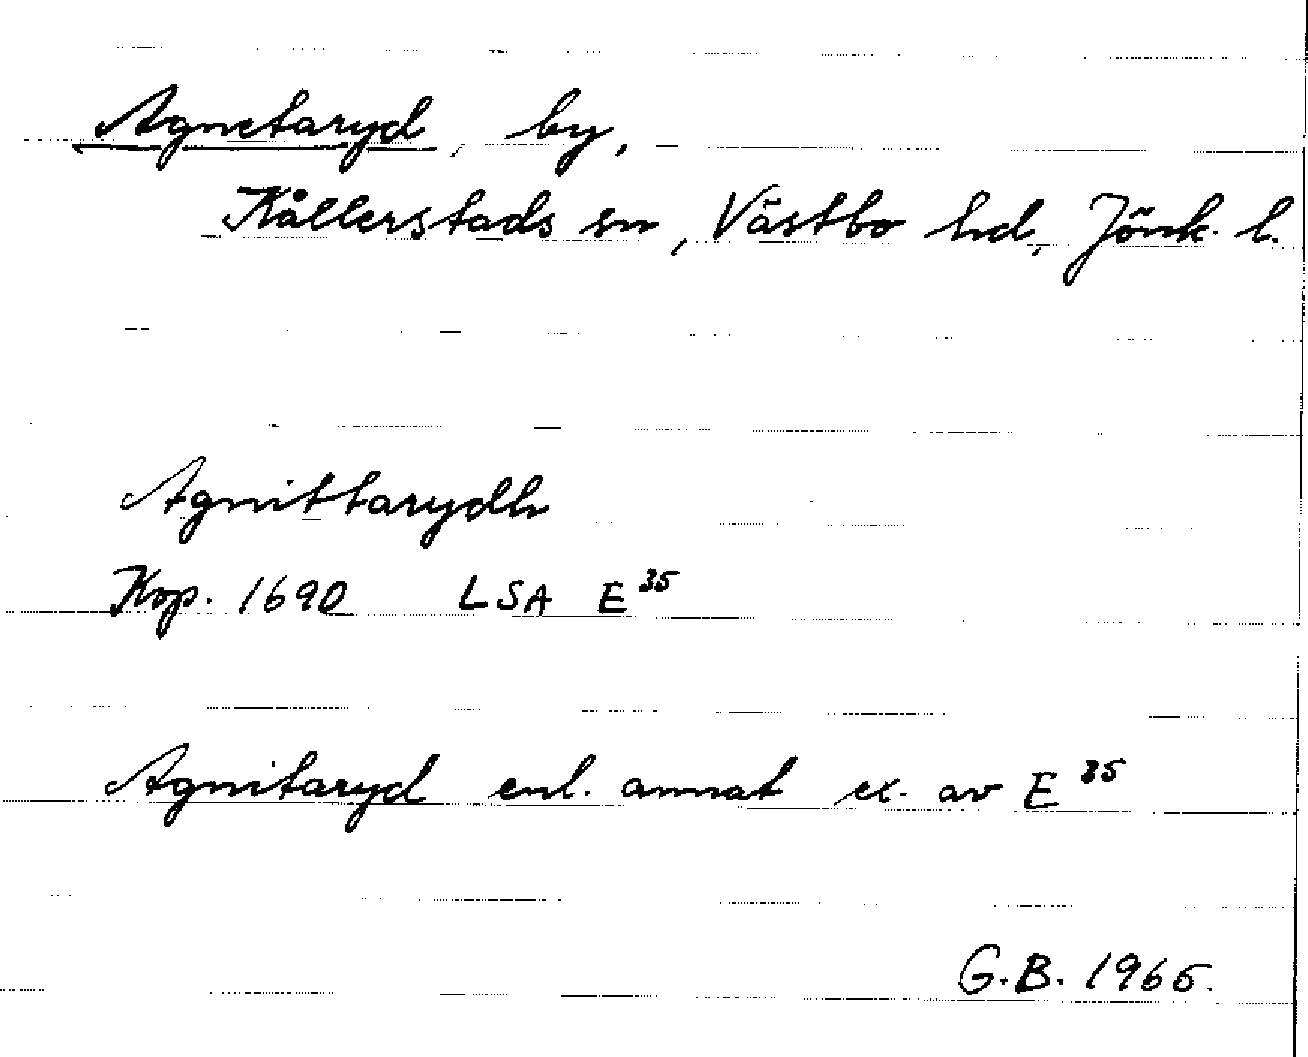 Agnetaryd, by,
Kållerstads sn, Västbo hd, Jönk. l.
Agnittarydh
Kop. 1690 LSA E 35
Agnitaryd enl. annat ex. av E 35
G.B. 1965.